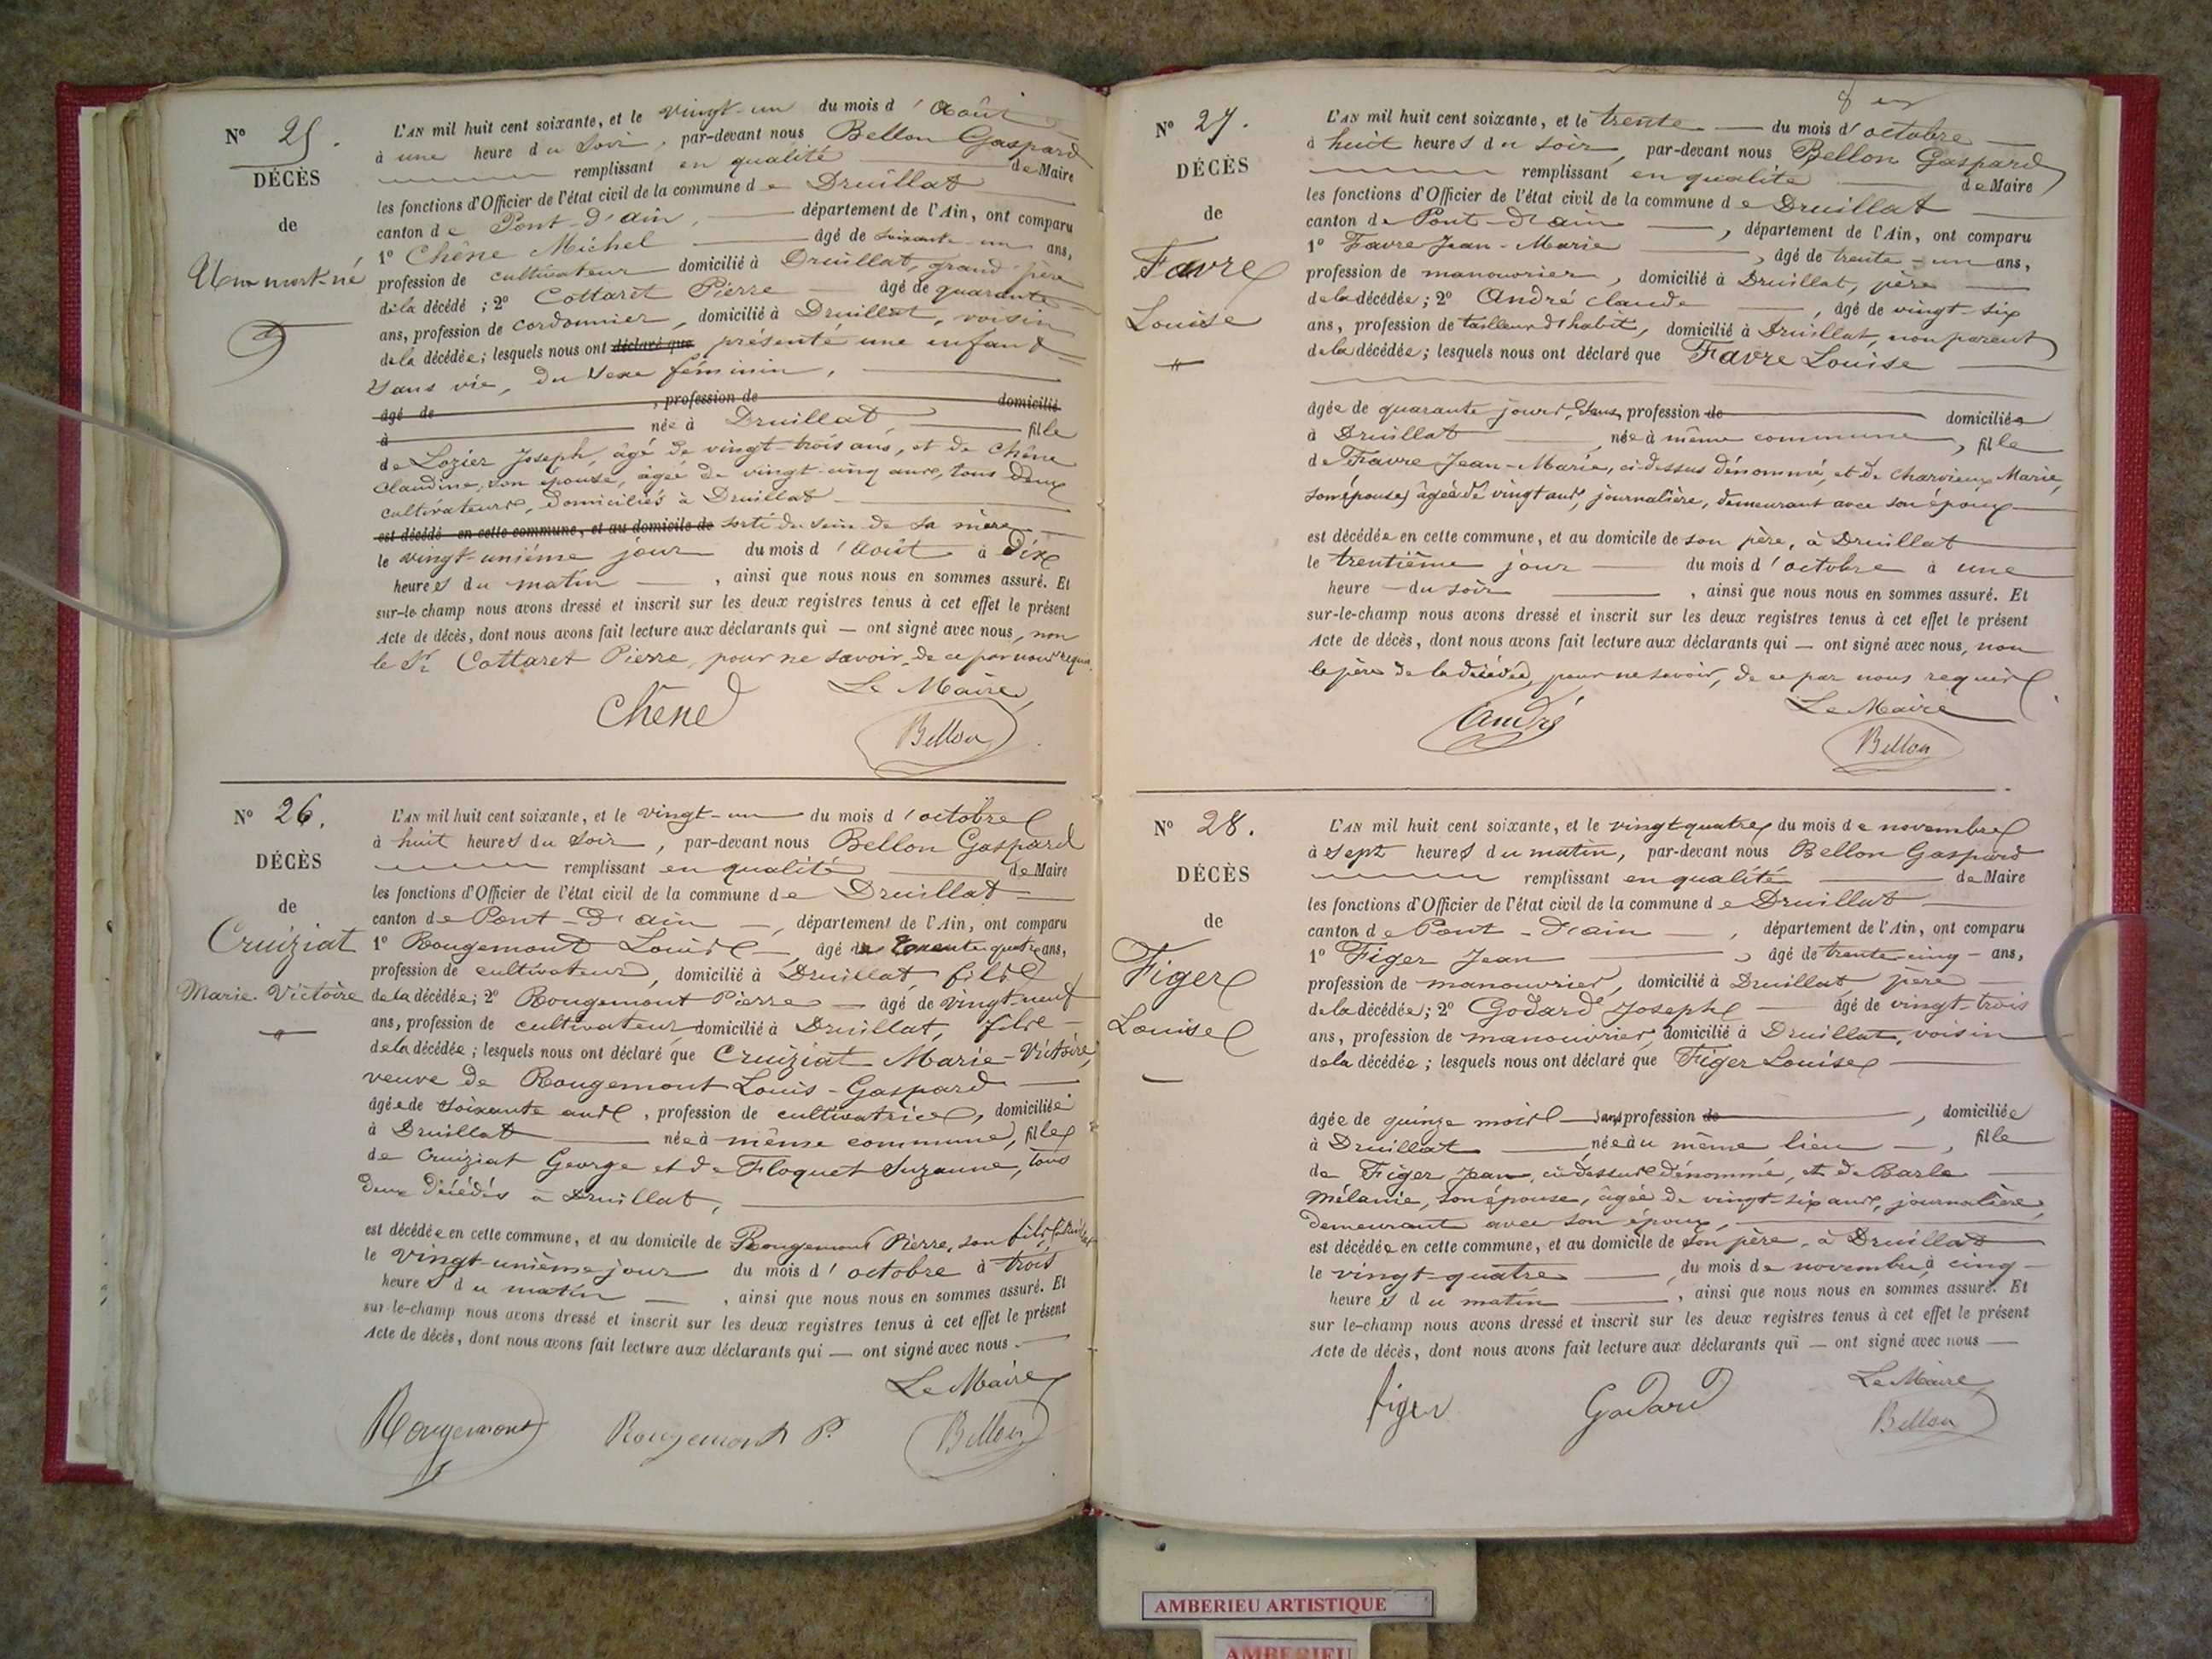 N° 25.
DÉCÈS
de
Un mort-né
L'AN mil huit cent soixante, et le vingt-un du mois d'Août
à une heure du soir, par-devant nous Bellon Gaspard
remplissant en qualité de Maire
les fonctions d'Officier de l'état civil de la commune de Druillat
canton de Pont-d'ain, département de l'Ain, ont comparu
1° Chêne Michel âgé de soixante-un ans,
profession de cultivateur domicilié à Druillat, grand père
de la décédé ; 2° Cottaret Pierre âgé de quarante
ans, profession de cordonnier, domicilié à Druillat, voisin
de la décédée ; lesquels nous ont déclaré que présenté une enfant
sans vie, du sexe féminin,
âgé de , profession de domicilié
à née à Druillat, fille
de Lozier Joseph, âgé de vingt-trois ans, et de Chêne
Claudine, son épouse, âgée de vingt-cinq ans, tous deux
cultivateurs, domiciliés à Druillat
est décédé en cette commune, et au domicile de sorti du sein de sa mère
le vingt-unième jour du mois d'Août à dix
heures du matin , ainsi que nous nous en sommes assuré. Et
sur-le-champ nous avons dressé et inscrit sur les deux registres tenus à cet effet le présent
Acte de décès, dont nous avons fait lecture aux déclarants qui — ont signé avec nous, non
le Sr Cottaret Pierre, pour ne savoir, de ce par nous requis
Le Maire
Chêne
Bellon
N° 26.
DÉCÈS
de
Cruiziat
Marie-Victoire
L'AN mil huit cent soixante, et le vingt-un du mois d'octobre
à huit heures du soir, par-devant nous Bellon Gaspard
remplissant en qualité de Maire
les fonctions d'Officier de l'état civil de la commune de Druillat
canton de Pont-d'ain —, département de l'Ain, ont comparu
1° Rougemont Louis —, âgé de trente quatre ans,
profession de cultivateur, domicilié à Druillat, fils
de la décédée ; 2° Rougemont Pierre — âgé de vingt-neuf
ans, profession de cultivateur domicilié à Druillat, fils
de la décédée ; lesquels nous ont déclaré que Cruiziat Marie-Victoire,
veuve de Rougemont Louis-Gaspard
âgée de soixante ans, profession de cultivatrice, domiciliée
à Druillat née à même commune, fille
de Cruiziat George et de Floquet Suzanne, tous
deux décédés à Druillat,
est décédée en cette commune, et au domicile de Rougemont Pierre, son fils, à Druillat
le vingt-unième jour du mois d'octobre à trois
heures du matin —, ainsi que nous nous en sommes assuré. Et
sur-le-champ nous avons dressé et inscrit sur les deux registres tenus à cet effet le présent
Acte de décès, dont nous avons fait lecture aux déclarants qui — ont signé avec nous.
Le Maire
Rougemont Rougemont P. Bellon
N° 27.
DÉCÈS
de
Favre
Louise
L'AN mil huit cent soixante, et le trente — du mois d'octobre
à huit heures du soir, par-devant nous Bellon Gaspard
remplissant en qualité de Maire
les fonctions d'Officier de l'état civil de la commune de Druillat
canton de Pont-d'ain —, département de l'Ain, ont comparu
1° Favre Jean-Marie , âgé de trente-un ans,
profession de manouvrier, domicilié à Druillat, père
de la décédée ; 2° André claude , âgé de vingt-six
ans, profession de tailleur d'habit, domicilié à Druillat, non parent
de la décédée ; lesquels nous ont déclaré que Favre Louise
âgée de quarante jours, sans profession de domiciliée
à Druillat , née à même commune, fille
de Favre Jean-Marie, ci-dessus dénommé, et de Charvieux Marie,
son épouse, âgée de vingt ans, journalière, demeurant avec son époux
est décédée en cette commune, et au domicile de son père, à Druillat
le trentième jour du mois d'octobre à une
heure du soir , ainsi que nous nous en sommes assuré. Et
sur-le-champ nous avons dressé et inscrit sur les deux registres tenus à cet effet le présent
Acte de décès, dont nous avons fait lecture aux déclarants qui — ont signé avec nous, non
le père de la décédée, pour ne savoir, de ce par nous requis
Le Maire
André
Bellon
N° 28.
DÉCÈS
de
Figer
Louise
L'AN mil huit cent soixante, et le vingt quatre du mois de novembre
à sept heures du matin, par-devant nous Bellon Gaspard
remplissant en qualité de Maire
les fonctions d'Officier de l'état civil de la commune de Druillat
canton de Pont-d'ain —, département de l'Ain, ont comparu
1° Figer Jean , âgé de trente-cinq — ans,
profession de manouvrier, domicilié à Druillat, père
de la décédée ; 2° Godard Joseph — âgé de vingt-trois
ans, profession de manouvrier, domicilié à Druillat, voisin
de la décédée ; lesquels nous ont déclaré que Figer Louise
âgée de quinze mois — sans profession de , domiciliée
à Druillat née au même lieu —, fille
de Figer Jean, ci-dessus dénommé, et de Barle
Mélanie, son épouse, âgée de vingt-six ans, journalière,
demeurant avec son époux,
est décédée en cette commune, et au domicile de son père, à Druillat
le vingt-quatre , du mois de novembre à cinq
heures du matin , ainsi que nous nous en sommes assuré. Et
sur le-champ nous avons dressé et inscrit sur les deux registres tenus à cet effet le présent
Acte de décès, dont nous avons fait lecture aux déclarants qui — ont signé avec nous —
Le Maire
figer Godard Bellon
AMBERIEU ARTISTIQUE
AMBERIEU